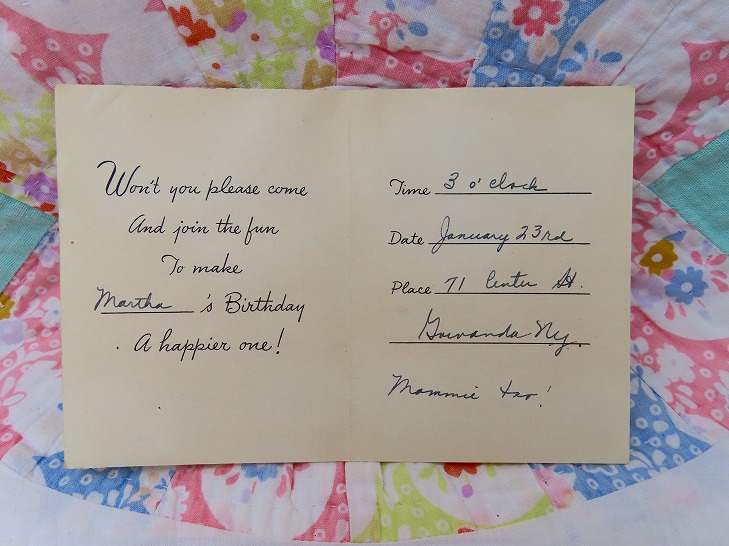 Won't you please come
And join the fun
To make
Martha 's Birthday
A happier one!
Time 3 o'clock
Date January 23rd
Place 71 Center St.
Gowanda Ny.
Mommie too!